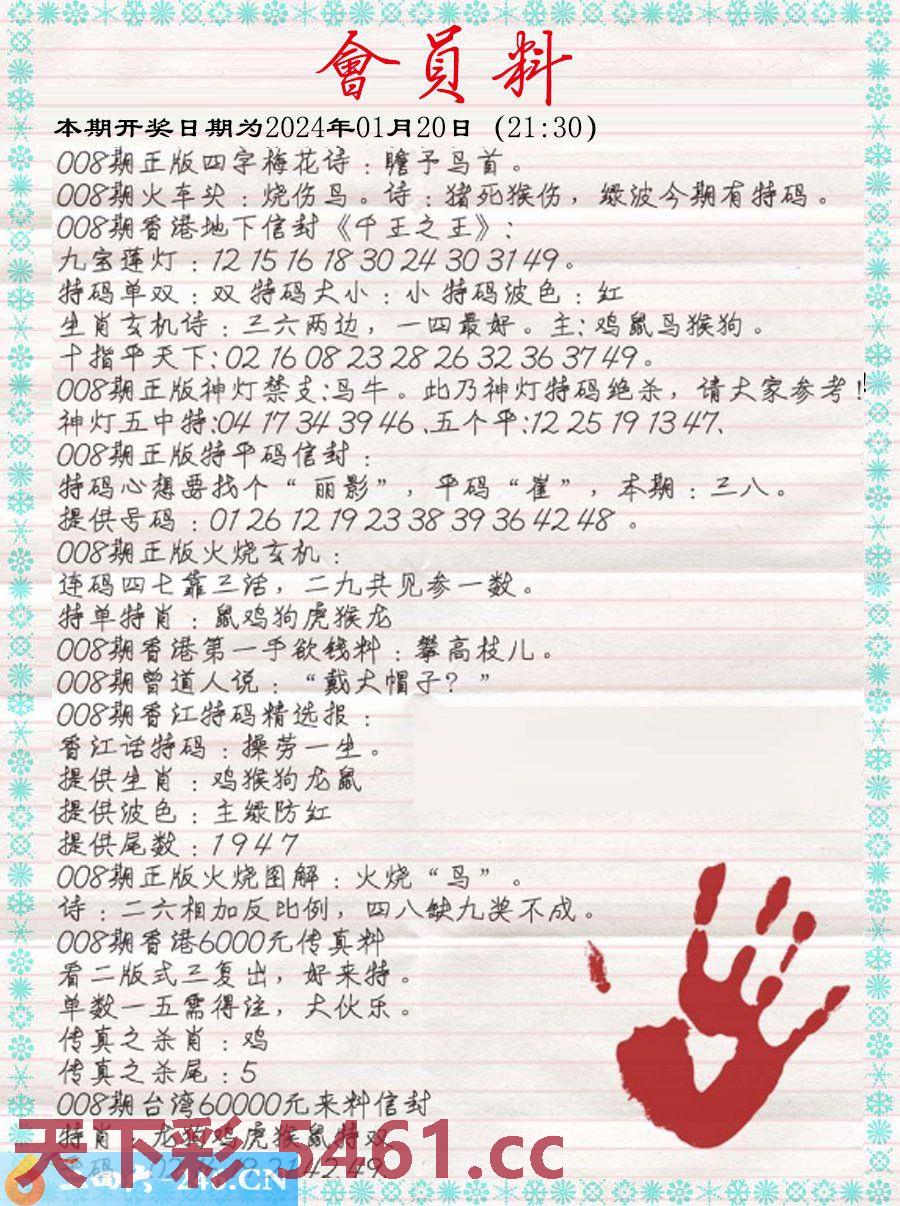 會員料
本期开奖日期为2024年01月20日（21:30）
008期正版四字梅花诗：瞻予马首。
008期火车头：烧伤鸟。诗：猪死猴伤，绿波今期有特码。
008期香港地下信封《千王之王》：
九宝莲灯：12 15 16 18 30 24 30 31 49。
特码单双：双 特码大小：小 特码波色：红
生肖玄机诗：三六两边，一四最好。主：鸡鼠马猴狗。
十指平天下：02 16 08 23 28 26 32 36 37 49。
008期正版神灯禁支：马牛。此乃神灯特码绝杀，请大家参考！
神灯五中特：04 17 34 39 46、五个平：12 25 19 13 47、
008期正版特平码信封：
特码心想要找个“丽影”，平码“崔”，本期：三八。
提供号码：01 26 12 19 23 38 39 36 42 48 。
008期正版火烧玄机：
连码四七靠三活，二九共见参一数。
特单特肖：鼠鸡狗虎猴龙
008期香港第一手欲钱料：攀高枝儿。
008期曾道人说：“戴大帽子？”
008期香江特码精选报：
香江话特码：操劳一生。
提供生肖：鸡猴狗龙鼠
提供波色：主绿防红
提供尾数：1 9 4 7
008期正版火烧图解：火烧“鸟”。
诗：二六相加反比例，四八缺九奖不成。
008期香港6000元传真料
看二版式三复出，好来特。
单数一五需得注，大伙乐。
传真之杀肖：鸡
传真之杀尾：5
008期台湾60000元来料信封
特肖：龙狗鸡虎猴鼠特双
天下彩 5461.cc
42 49
246.CN